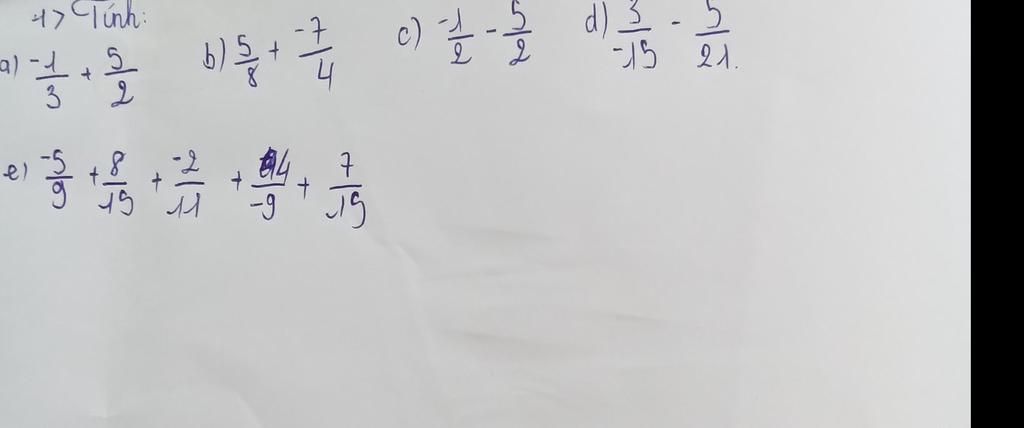 1> Tính:
a) -1/3 + 5/2 b) 5/8 + -7/4 c) -1/2 - 5/2 d) 3/-15 - 5/21.
e) -5/9 + 8/15 + -2/11 + 4/-9 + 7/15